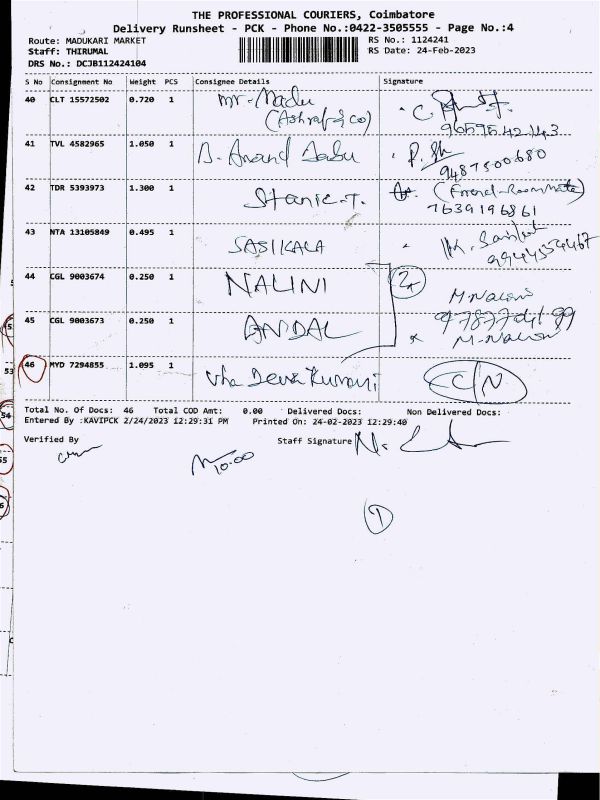 THE PROFESSIONAL COURIERS, Coimbatore
Delivery Runsheet - PCK - Phone No.:0422-3505555 - Page No.:4
Route: MADUKARI MARKET
RS No.: 1124241
Staff: THIRUMAL
RS Date: 24-Feb-2023
DRS No.: DCJB112424104
S No Consignment No Weight PCS Consignee Details Signature
40 CLT 15572502 0.720 1 Mr. Madu
(Ashraf & co)
9659542143
41 TVL 4582965 1.050 1 D. Anand Babu
9487500680
42 TDR 5393973 1.300 1 Stanie.T. (Friend-Roommate)
7639196861
43 NTA 13105849 0.495 1 SASIKALA
9944554467
44 CGL 9003674 0.250 1 NALINI 2
M. Nalini
45 CGL 9003673 0.250 1 ANDAL
M. Nalini
46 MYD 7294855 1.095 1 Deva Kumari C/N
Total No. Of Docs: 46 Total COD Amt: 0.00 Delivered Docs: Non Delivered Docs:
Entered By :KAVIPCK 2/24/2023 12:29:31 PM Printed On: 24-02-2023 12:29:40
Verified By Staff Signature
10.00
1
53
54
55